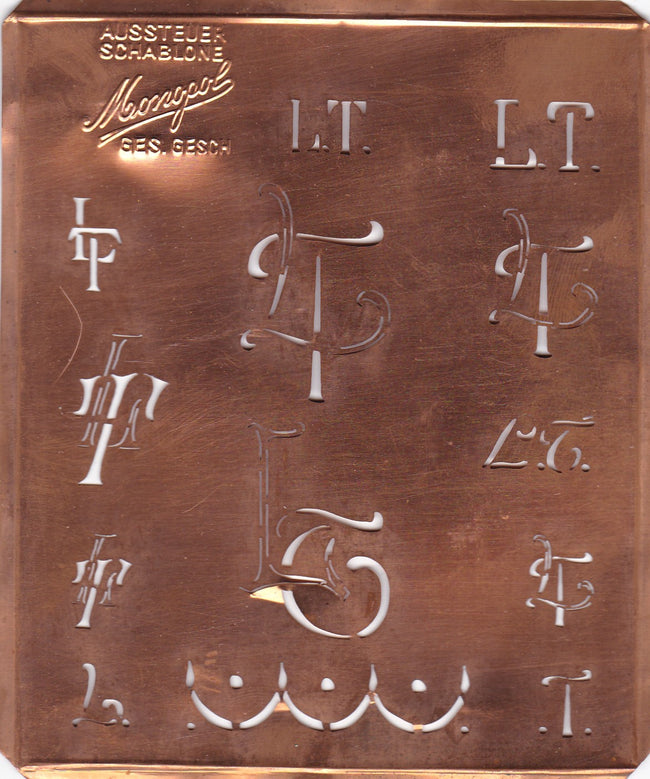 AUSSTEUER
SCHABLONE
Monopol
GES. GESCH
L.T.
L.T.
LT
LT
LT
LT
L.T.
LT
LT
LT
L.
T.